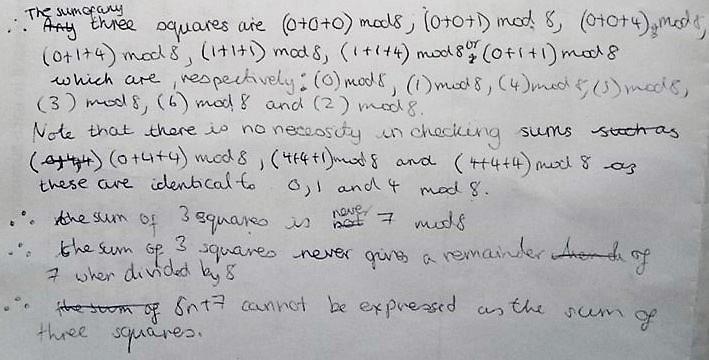 The sum of any
∴ Any three squares are (0+0+0) mod 8, (0+0+1) mod 8, (0+0+4) mod 8,
(0+1+4) mod 8, (1+1+1) mod 8, (1+1+4) mod 8 or (0+1+1) mod 8
which are, respectively: (0) mod 8, (1) mod 8, (4) mod 8, (5) mod 8,
(3) mod 8, (6) mod 8 and (2) mod 8.
Note that there is no necessity in checking sums such as
(0+4+4) mod 8, (4+4+1) mod 8 and (4+4+4) mod 8 as
these are identical to 0, 1 and 4 mod 8.
∴ the sum of 3 squares is never 7 mod 8
∴ the sum of 3 squares never gives a remainder of
7 when divided by 8
∴ the sum of 8n+7 cannot be expressed as the sum of
three squares.